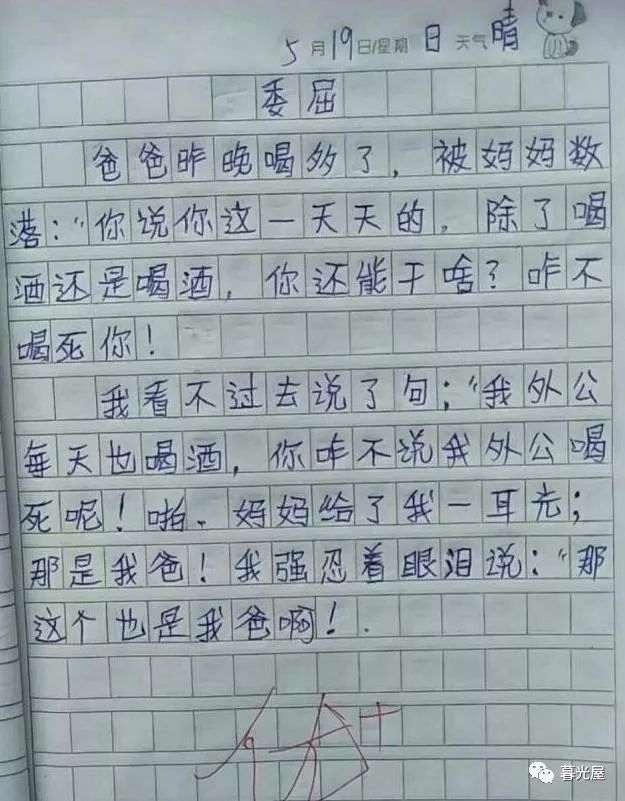 5月19日/星期日 天气晴
委屈
爸爸昨晚喝多了，被妈妈数
落："你说你这一天天的，除了喝
酒还是喝酒，你还能干啥？咋不
喝死你！
我看不过去说了句："我外公
每天也喝酒，你咋不说我外公喝
死呢！啪．妈妈给了我一耳光；
那是我爸！我强忍着眼泪说："那
这个也是我爸啊！．
暮光屋